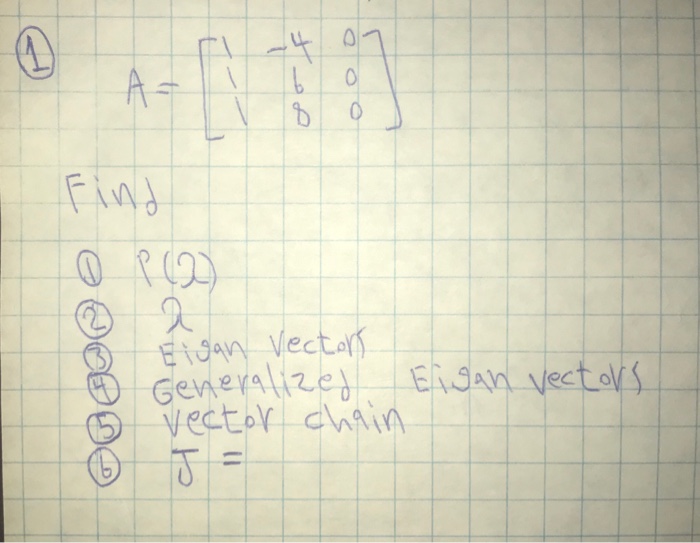 ① A = [ 1 -4 0
1 6 0
1 8 0 ]
Find
① P(λ)
② λ
③ Eigan vectors
④ Generalized Eigan vectors
⑤ vector chain
⑥ J =